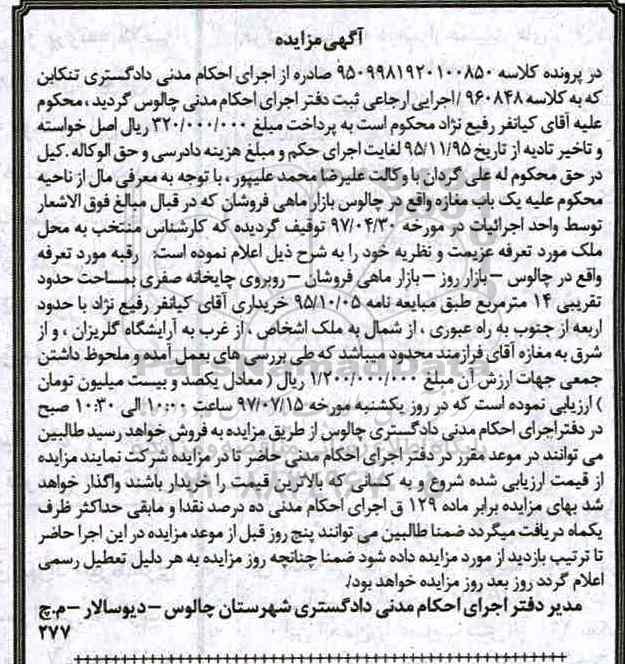 آگهی مزایده
در پرونده کلاسه ۹۵۰۹۹۸۱۹۲۰۱۰۰۸۵۰ صادره از اجرای احکام مدنی دادگستری تنکابن
که به کلاسه ۹۶۰۸۴۸ /اجرایی ارجاعی ثبت دفتر اجرای احکام مدنی چالوس گردید ، محکوم
علیه آقای کیانفر رفیع نژاد محکوم است به پرداخت مبلغ ۳۲۰/۰۰۰/۰۰۰ ریال اصل خواسته
و تاخیر تادیه از تاریخ ۹۵/۱۱/۹۵ لغایت اجرای حکم و مبلغ هزینه دادرسی و حق الوکاله .کیل
در حق محکوم له علی گردان با وکالت علیرضا محمد علیپور ، با توجه به معرفی مال از ناحیه
محکوم علیه یک باب مغازه واقع در چالوس بازار ماهی فروشان که در قبال مبالغ فوق الاشعار
توسط واحد اجرائیات در مورخه ۹۷/۰۴/۳۰ توقیف گردیده که کارشناس منتخب به محل
ملک مورد تعرفه عزیمت و نظریه خود را به شرح ذیل اعلام نموده است: رقبه مورد تعرفه
واقع در چالوس – بازار روز – بازار ماهی فروشان – روبروی چایخانه صفری بمساحت حدود
تقریبی ۱۴ مترمربع طبق مبایعه نامه ۹۵/۱۰/۰۵ خریداری آقای کیانفر رفیع نژاد با حدود
اربعه از جنوب به راه عبوری ، از شمال به ملک اشخاص ، از غرب به آرایشگاه گلریزان ، و از
شرق به مغازه آقای فرازمند محدود میباشد که طی بررسی های بعمل آمده و ملحوظ داشتن
جمعی جهات ارزش آن مبلغ ۱/۲۰۰/۰۰۰/۰۰۰ ریال ( معادل یکصد و بیست میلیون تومان
) ارزیابی نموده است که در روز یکشنبه مورخه ۹۷/۰۷/۱۵ ساعت ۱۰:۰۰ الی ۱۰:۳۰ صبح
در دفتراجرای احکام مدنی دادگستری چالوس از طریق مزایده به فروش خواهد رسید طالبین
می توانند در موعد مقرر در دفتر اجرای احکام مدنی حاضر تا در مزایده شرکت نمایند مزایده
از قیمت ارزیابی شده شروع و به کسانی که بالاترین قیمت را خریدار باشند واگذار خواهد
شد بهای مزایده برابر ماده ۱۲۹ ق اجرای احکام مدنی ده درصد نقدا و مابقی حداکثر ظرف
یکماه دریافت میگردد ضمنا طالبین می توانند پنج روز قبل از موعد مزایده در این اجرا حاضر
تا ترتیب بازدید از مورد مزایده داده شود ضمنا چنانچه روز مزایده به هر دلیل تعطیل رسمی
اعلام گردد روز بعد روز مزایده خواهد بود/.
مدیر دفتر اجرای احکام مدنی دادگستری شهرستان چالوس – دیوسالار – م.چ
۲۷۷
ParsNamadData